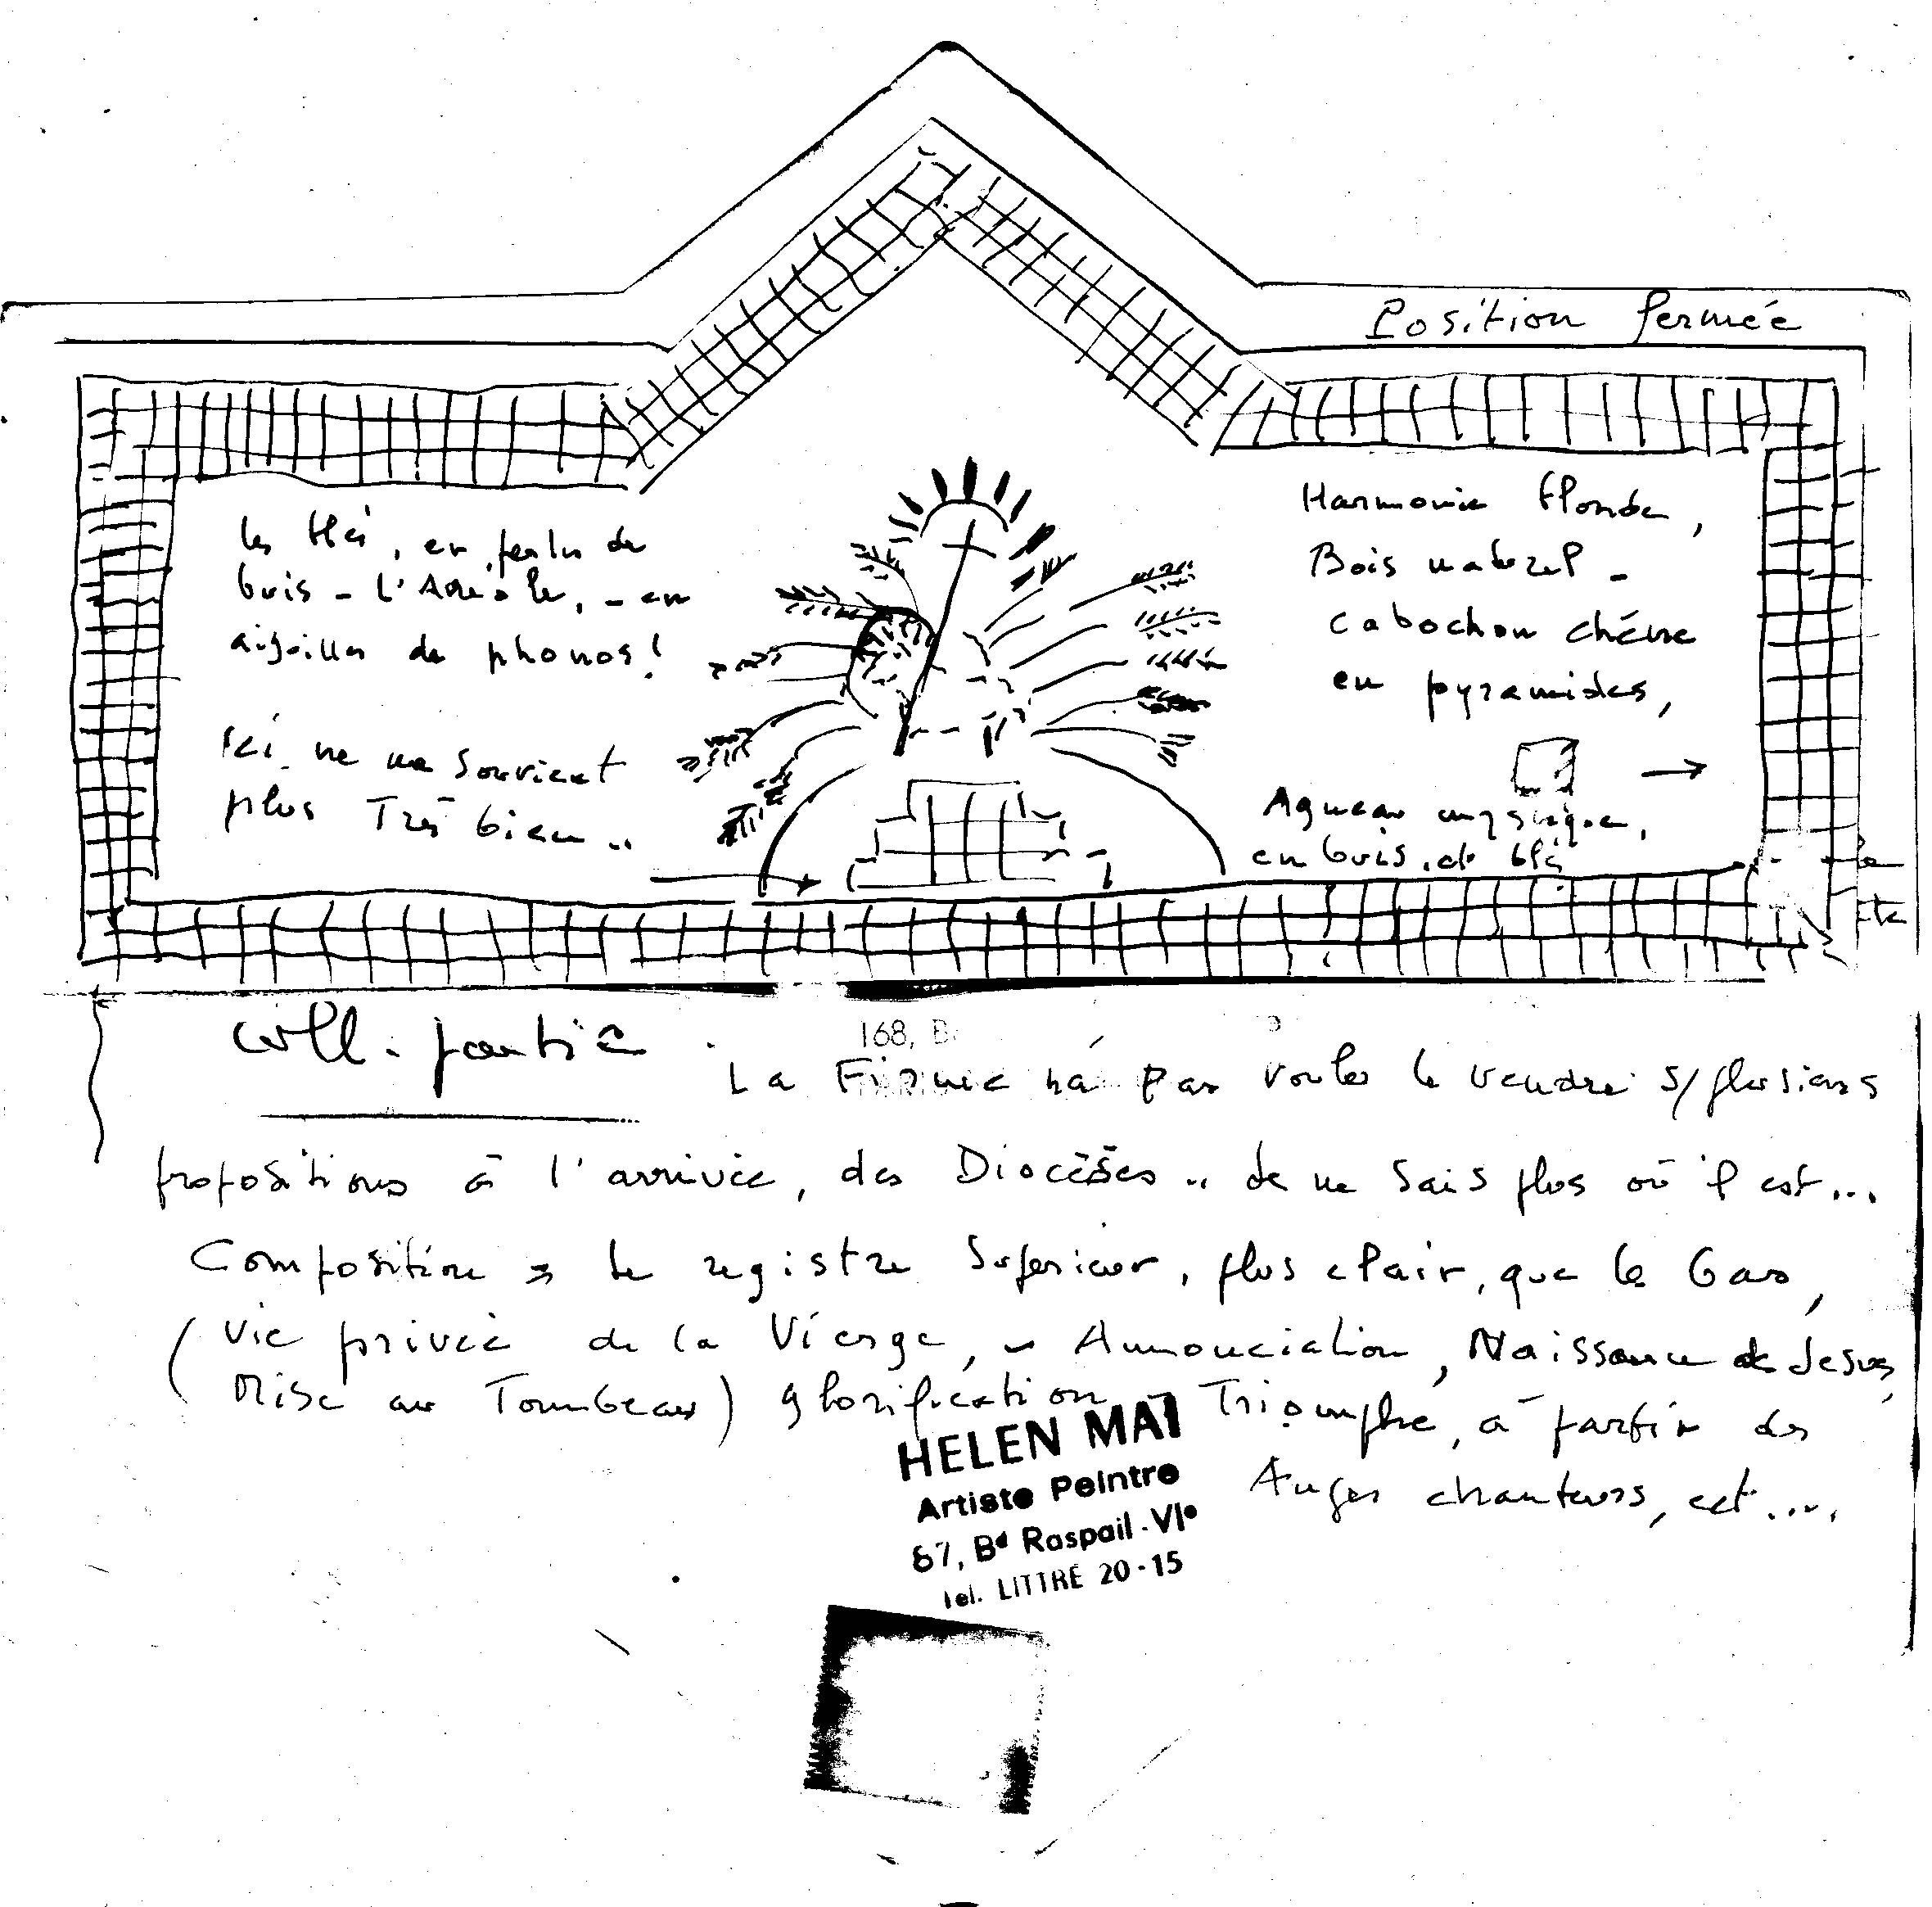 Position fermée
les blés, en perles de
buis - L'Auréole, - en
aiguilles de phonos!
ici ne me souvient
plus Très bien ..
Harmonie blonde,
Bois naturel -
cabochon chêne
en pyramides,
Agneau mystique,
en buis, et blé
coll. partic
168, B
La Firme n'a pas voulu le vendre s/ plusieurs
propositions à l'arrivée, des Diocèses .. Je ne sais plus où il est...
Composition le registre Supérieur, plus clair, que le bas,
(Vie privée de la Vierge, - Annonciation, Naissance de Jesus,
Mise au Tombeau) glorification Triomphe, à partir des
Anges chanteurs, ect....
HELEN MAÏ
Artiste Peintre
67, Bd Raspail - VIe
Tel. LITTRÉ 20-15